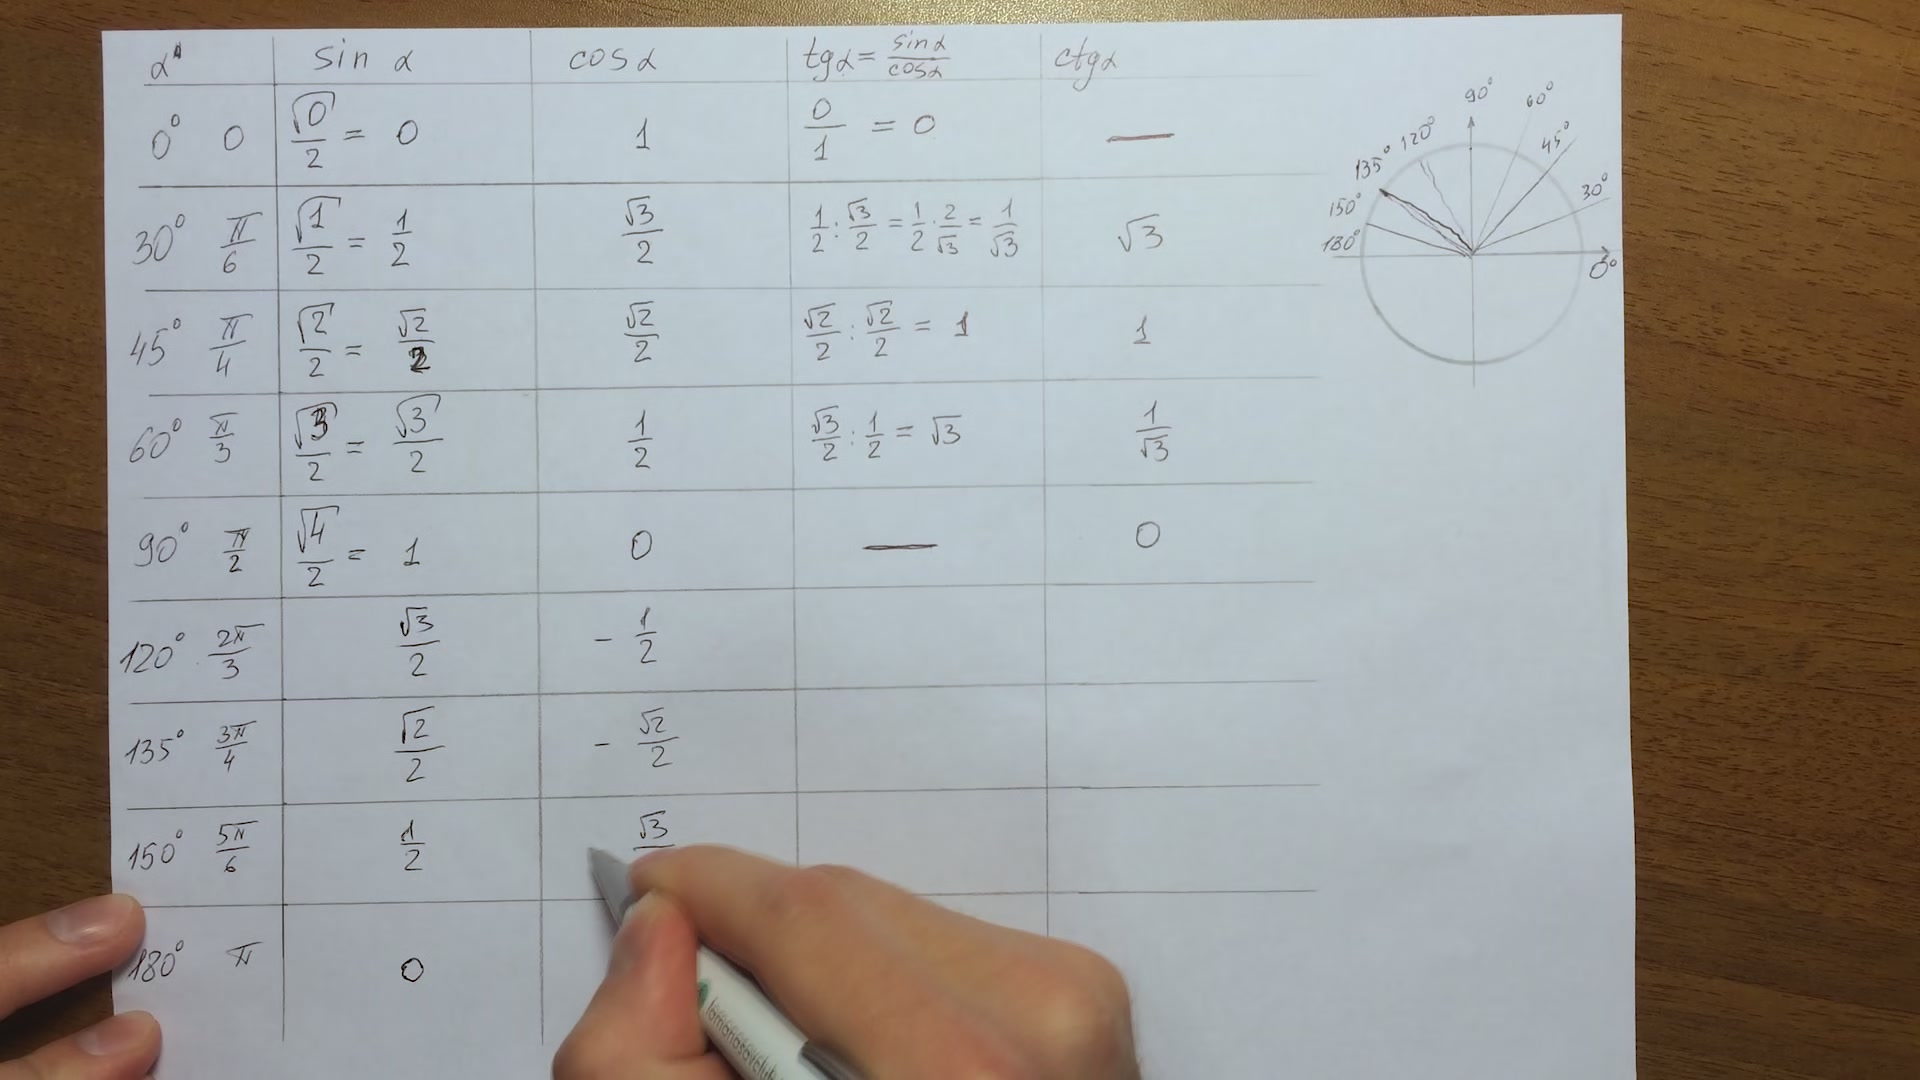 α° sin α cosα tgα = sinα/cosα ctgα
0° 0 √0/2 = 0 1 0/1 = 0 —
30° π/6 √1/2 = 1/2 √3/2 1/2 : √3/2 = 1/2 · 2/√3 = 1/√3 √3
45° π/4 √2/2 = √2/2 √2/2 √2/2 : √2/2 = 1 1
60° π/3 √3/2 = √3/2 1/2 √3/2 : 1/2 = √3 1/√3
90° π/2 √4/2 = 1 0 — 0
120° 2π/3 √3/2 - 1/2
135° 3π/4 √2/2 - √2/2
150° 5π/6 1/2 √3
180° π 0
90°
60°
120°
45°
135°
30°
150°
180°
0°